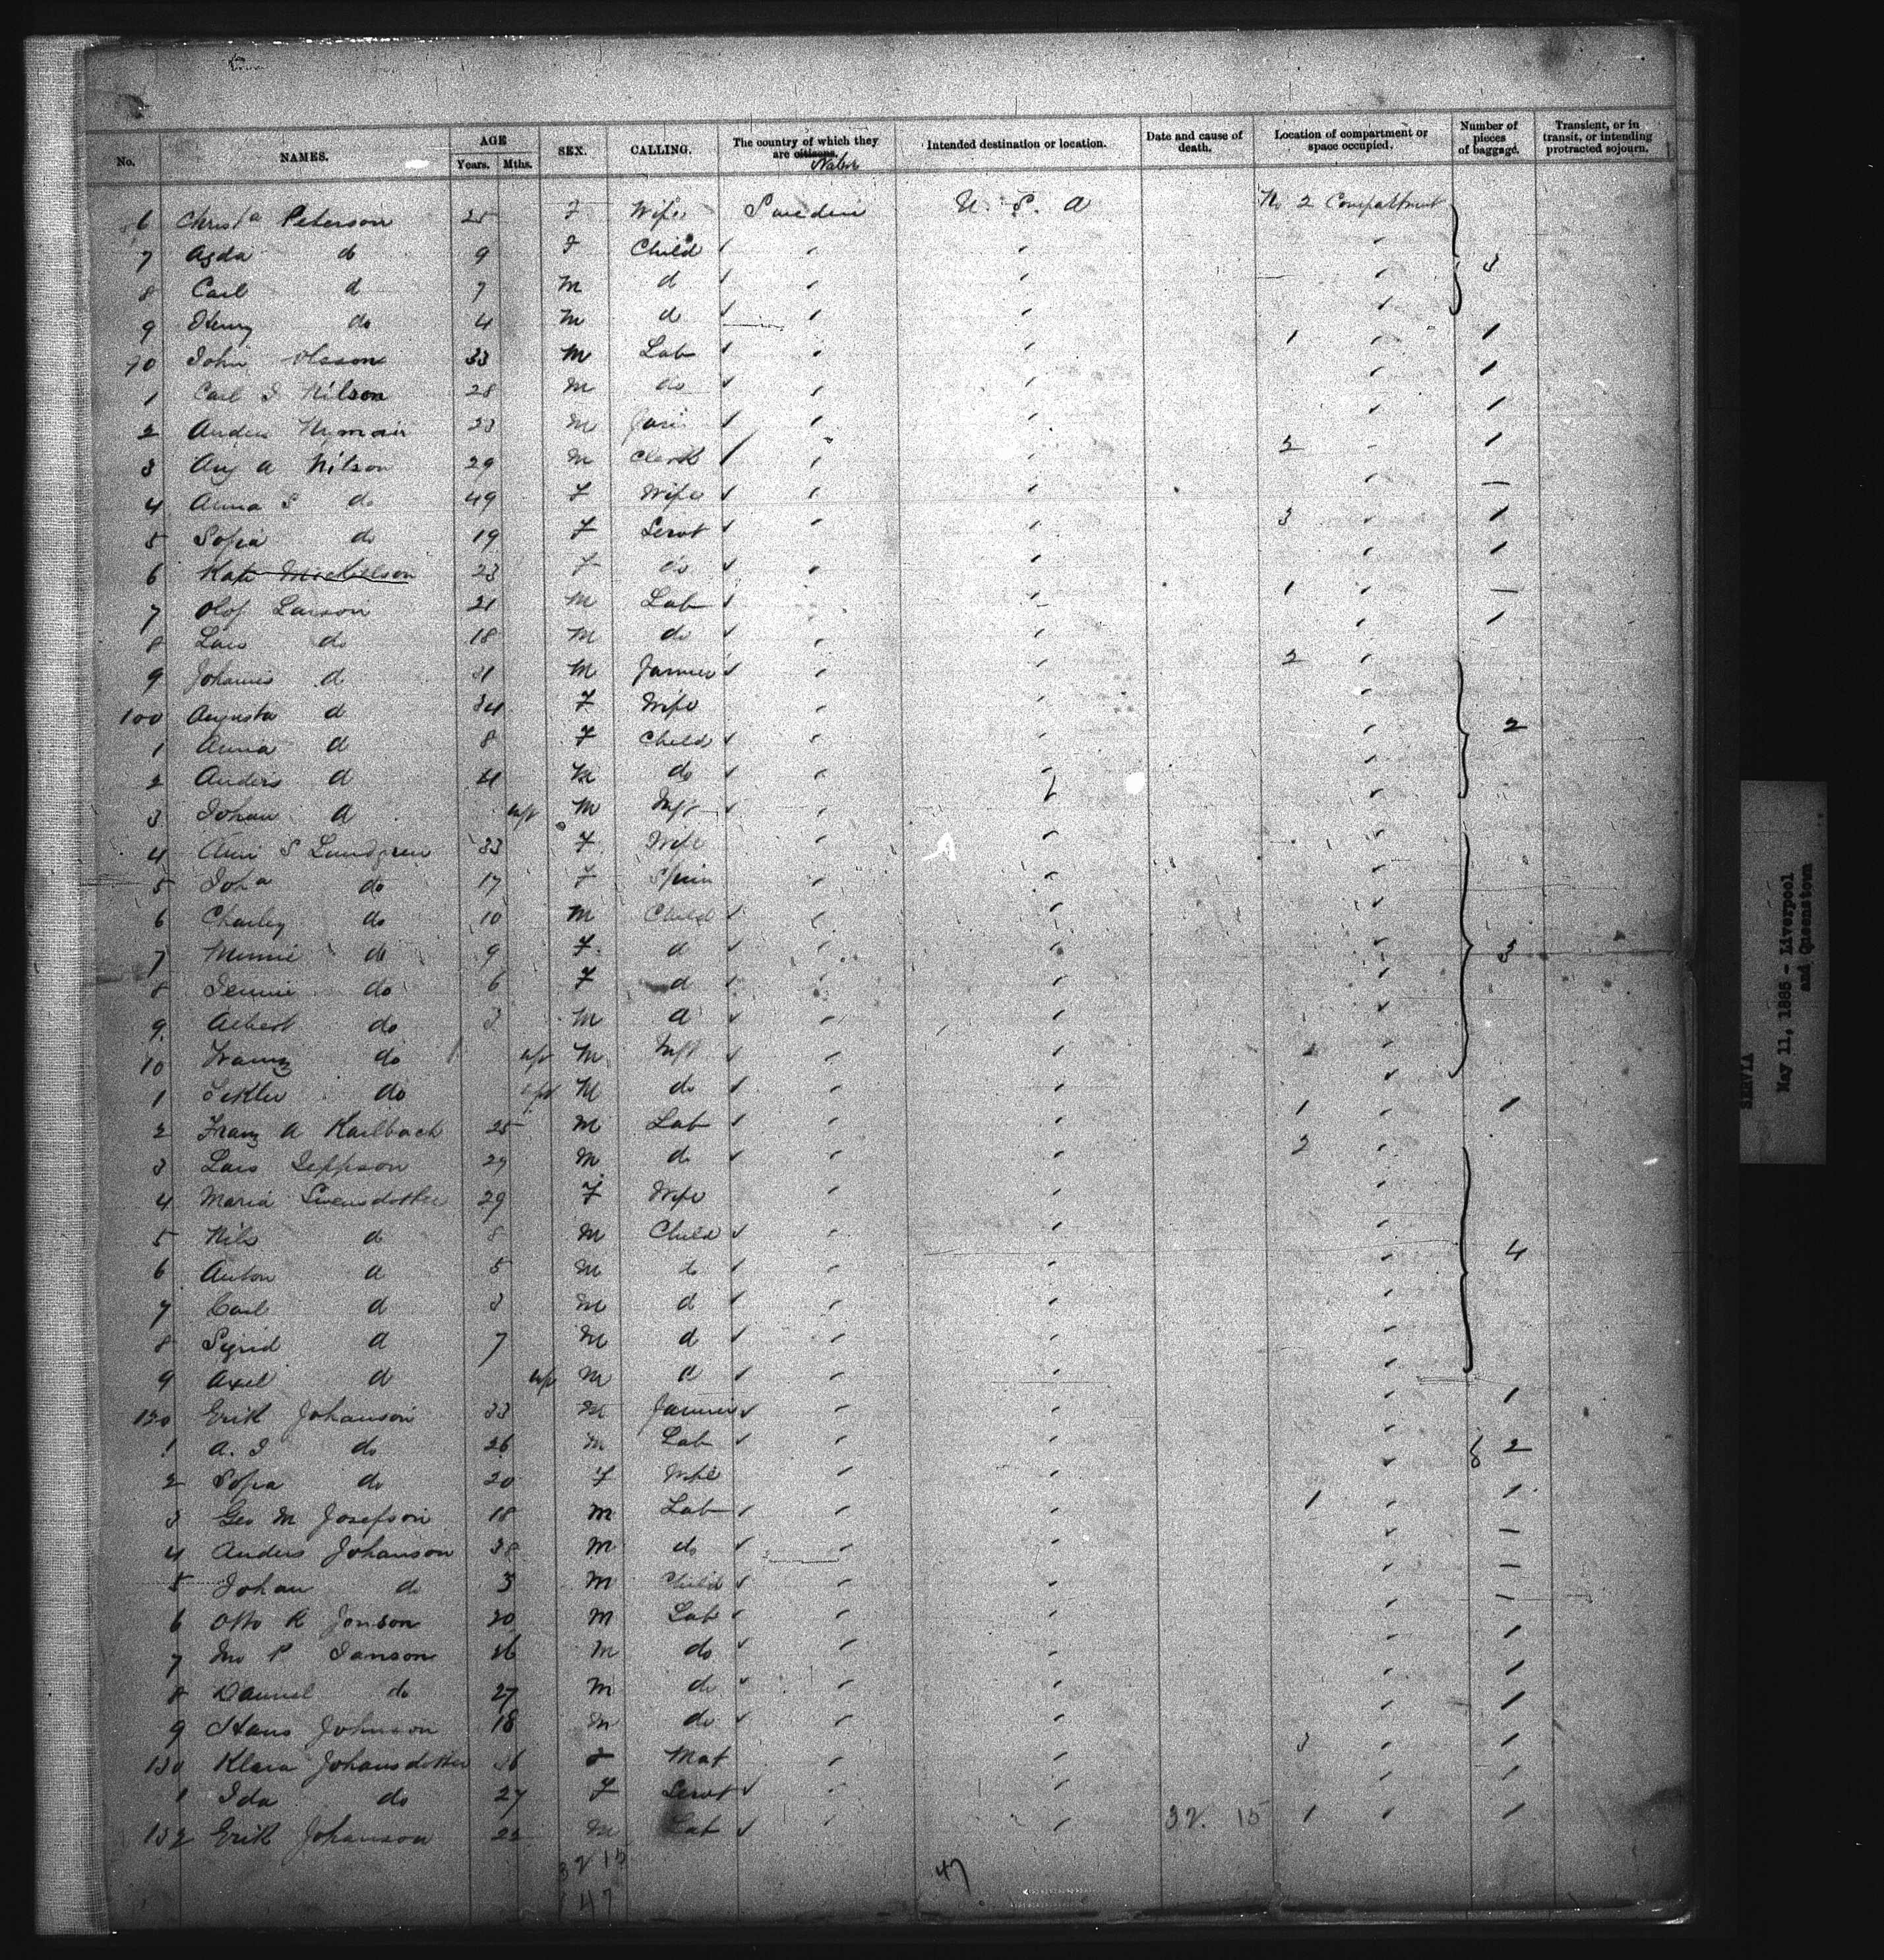 No. NAMES. AGE Years. Mths. SEX. CALLING. The country of which they are citizens. Intended destination or location. Date and cause of death. Location of compartment or space occupied. Number of pieces of baggage. Transient, or in transit, or intending protracted sojourn.
6 Christa Peterson 25 F Wife Sweden U. S. A No 2 Compartment
7 Agda do 9 F Child 3
8 Carl d 7 M d
9 Henry do 4 M d
90 John Olsson 33 M Lab 1 1
1 Carl J Nilson 28 M do 1
2 Anders Nyman 23 M 1
3 Aug A Nilson 29 M Clerk 2 1
4 Anna S do 49 F Wife —
5 Sofia do 19 F Servt 3 1
6 Kate Mickelson 23 F do 1
7 Olof Larson 21 M Lab 1 —
8 Lars do 18 M do 1
9 Johannis d 31 M Farmer 2
100 Augusta d 34 F Wife 2
1 Anna d 8 F Child
2 Anders d 4 M do
3 Johan d M Inft
4 Ann S Lundgren 33 F Wife
5 Joha do 17 F Spin
6 Charley do 10 M Child
7 Minnie do 9 F d 3
8 Jennie do 6 F d
9 Albert do 3 M d
10 Franz do M Inft
1 do M do
2 Franz A Kailbach 25 M Lab 1 1
3 Lars Jeppson 29 M do 2
4 Maria Swensdotter 29 F Wife
5 Nils d 8 M Child 4
6 Anton d 5 M do
7 Carl d 3 M d
8 Sigrid d 7 M d
9 Axel d M d
120 Erik Johanson 33 M Farmer 1
1 A. J do 26 M Lab 2
2 Sofia do 20 F Wife
3 Geo M Josefson 18 M Lab 1 1
4 Anders Johanson 38 M do —
5 Johan do 3 M Child —
6 Otto R Jonson 20 M Lab —
7 Jno P Janson 26 M do 1
8 Daniel do 27 M do 1
9 Hans Johnson 18 M do 1
130 Klara Johansdotter 36 F Mat 3 1
1 Ida do 27 F Servt 1
132 Erik Johanson 22 M Lab 32 15 1 1
32 15
47 47
SERVIA
May 11, 1885 - Liverpool
and Queenstown